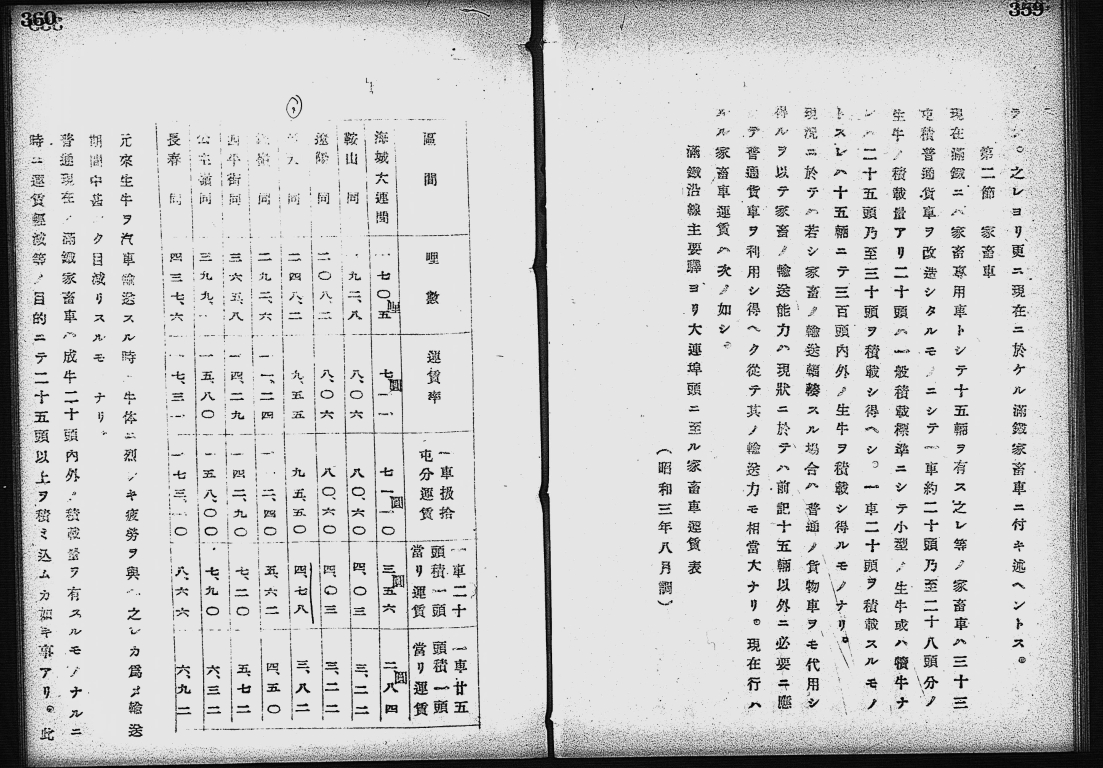 359
ラン。之レヨリ更ニ現在ニ於ケル滿鐵家畜車ニ付キ述ヘントス。
第二節 家畜車
現在滿鐵ニハ家畜專用車トシテ十五輛ヲ有ス之レ等ノ家畜車ハ三十三
屯積普通貨車ヲ改造シタルモノニシテ一車約二十頭乃至二十八頭分ノ
生牛ノ積載量アリ二十頭ハ一般積載標準ニシテ小型ノ生牛或ハ犢牛ナ
レハ二十五頭乃至三十頭ヲ積載シ得ヘシ。一車二十頭ヲ積載スルモノ
トスレハ十五輛ニテ三百頭內外ノ生牛ヲ積載シ得ルモノナリ。
現況ニ於テハ若シ家畜ノ輸送輻輳スル場合ハ普通ノ貨物車ヲモ代用シ
得ルヲ以テ家畜ノ輸送能力ハ現狀ニ於テハ前記十五輛以外ニ必要ニ應
シテ普通貨車ヲ利用シ得ヘク從テ其ノ輸送力モ相當大ナリ。現在行ハ
ルル家畜車運賃ハ次ノ如シ。
滿鐵沿線主要驛ヨリ大連埠頭ニ至ル家畜車運賃表
(昭和三年八月調)
360
區間 哩數 運賃率 一車扱拾屯分運賃 一車二十頭積一頭當リ運賃 一車廿五頭積一頭當リ運賃
海城大連間 一七〇、五哩 七、一一圓 七一、一〇圓 三、五六圓 二、八四圓
鞍山 同 一九二、八 八、〇六 八〇、六〇 四、〇三 三、二二
遼陽 同 二〇八、二 八、〇六 八〇、六〇 四、〇三 三、二二
同 二四八、二 九、五五 九五、五〇 四、七八 三、八二
同 二九二、六 一一、二四 一一二、四〇 五、六二 四、五〇
四平街同 三六五、八 一四、二九 一四二、九〇 七、二〇 五、七二
公主嶺同 三九九、一 一五、八〇 一五八、〇〇 七、九〇 六、三二
長春 同 四三七、六 一七、三一 一七三、一〇 八、六六 六、九二
元來生牛ヲ汽車輸送スル時ハ牛体ニ烈シキ疲勞ヲ與ヘ之レカ爲メ輸送
期間中甚シク目減リスルモノナリ。
普通現在ノ滿鐵家畜車ハ成牛二十頭內外ノ積載量ヲ有スルモノナルニ
時ニ運賃輕減等ノ目的ニテ二十五頭以上ヲ積ミ込ムカ如キ事アリ。此